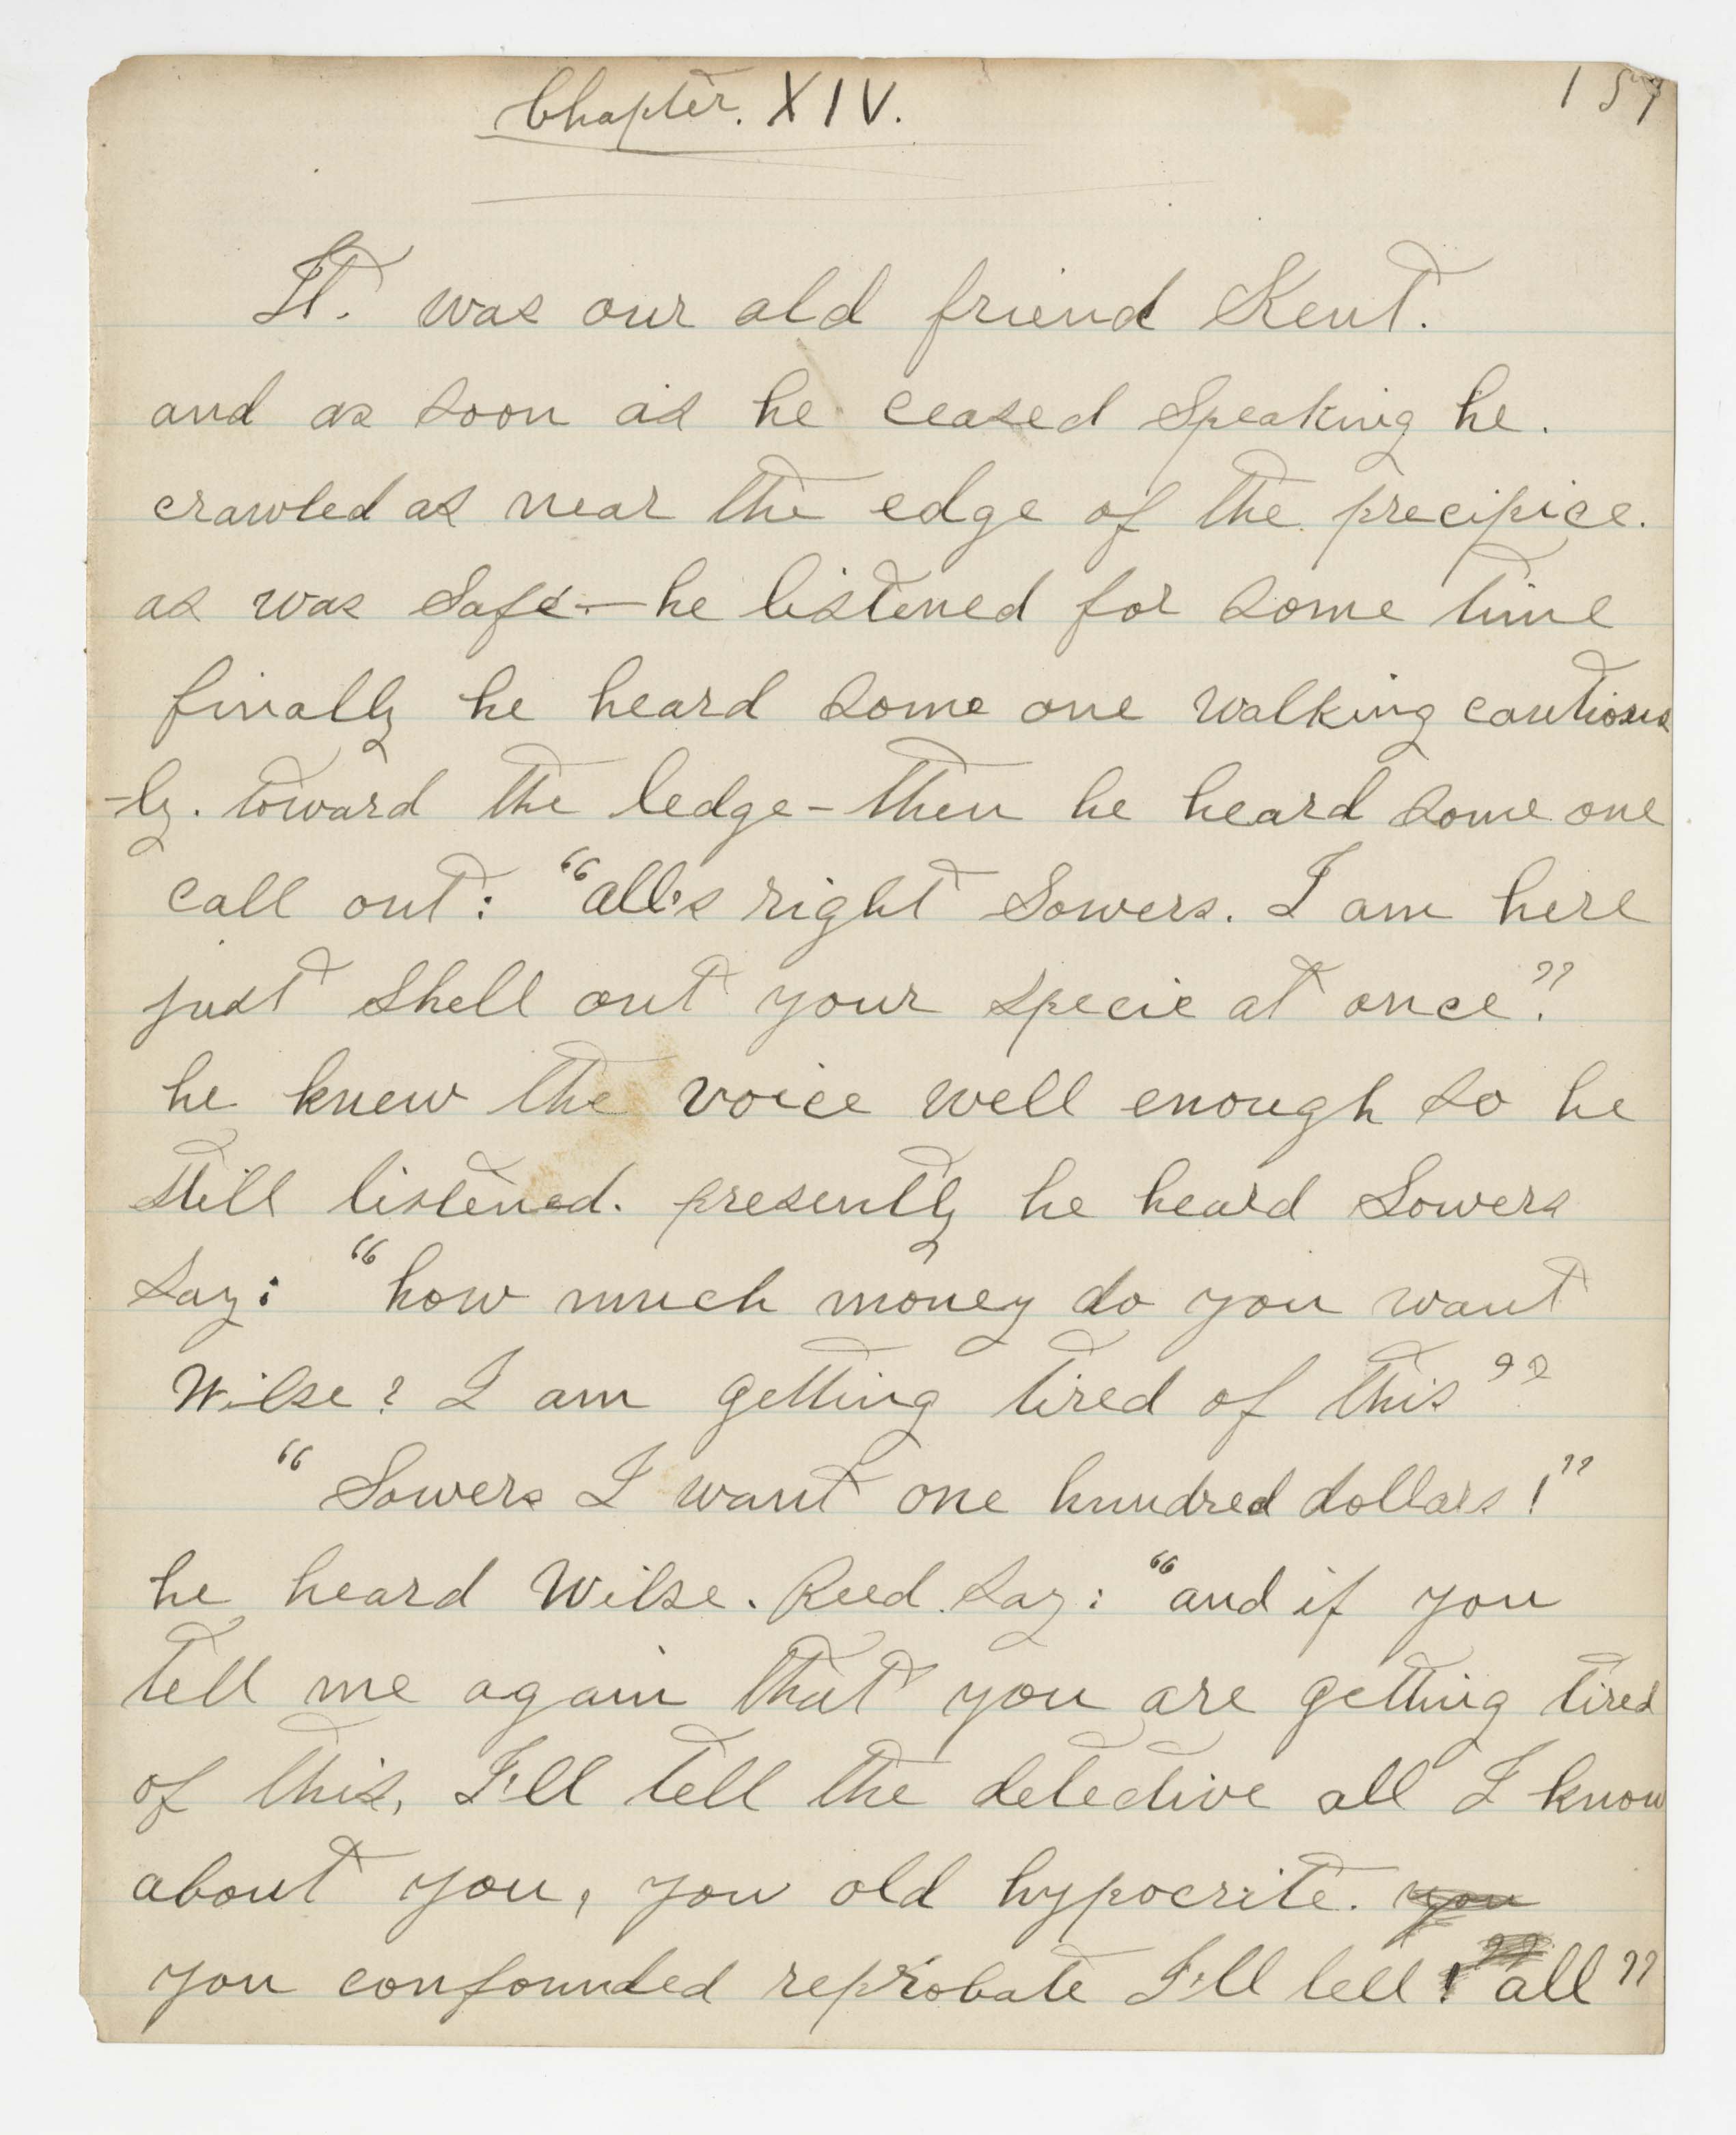 Chapter. XIV.
157
It. was our old friend Kent.
and as soon as he ceased speaking he.
crawled as near the edge of the precipice.
as was safe.—he listened for some time
finally he heard some one walking cautious
-ly. toward the ledge - then he heard some one
call out: "all's right Sowers. I am here
just shell out your specie at once."
he knew the voice well enough so he
still listened. presently he heard Sowers
say: "how much money do you want
Wilse? I am getting tired of this"
"Sowers I want one hundred dollars!"
he heard Wilse. Reed. say: "and if you
tell me again that you are getting tired
of this, I'll tell the detective all I know
about you, you old hypocrite. you
you confounded reprobate I'll tell! all"